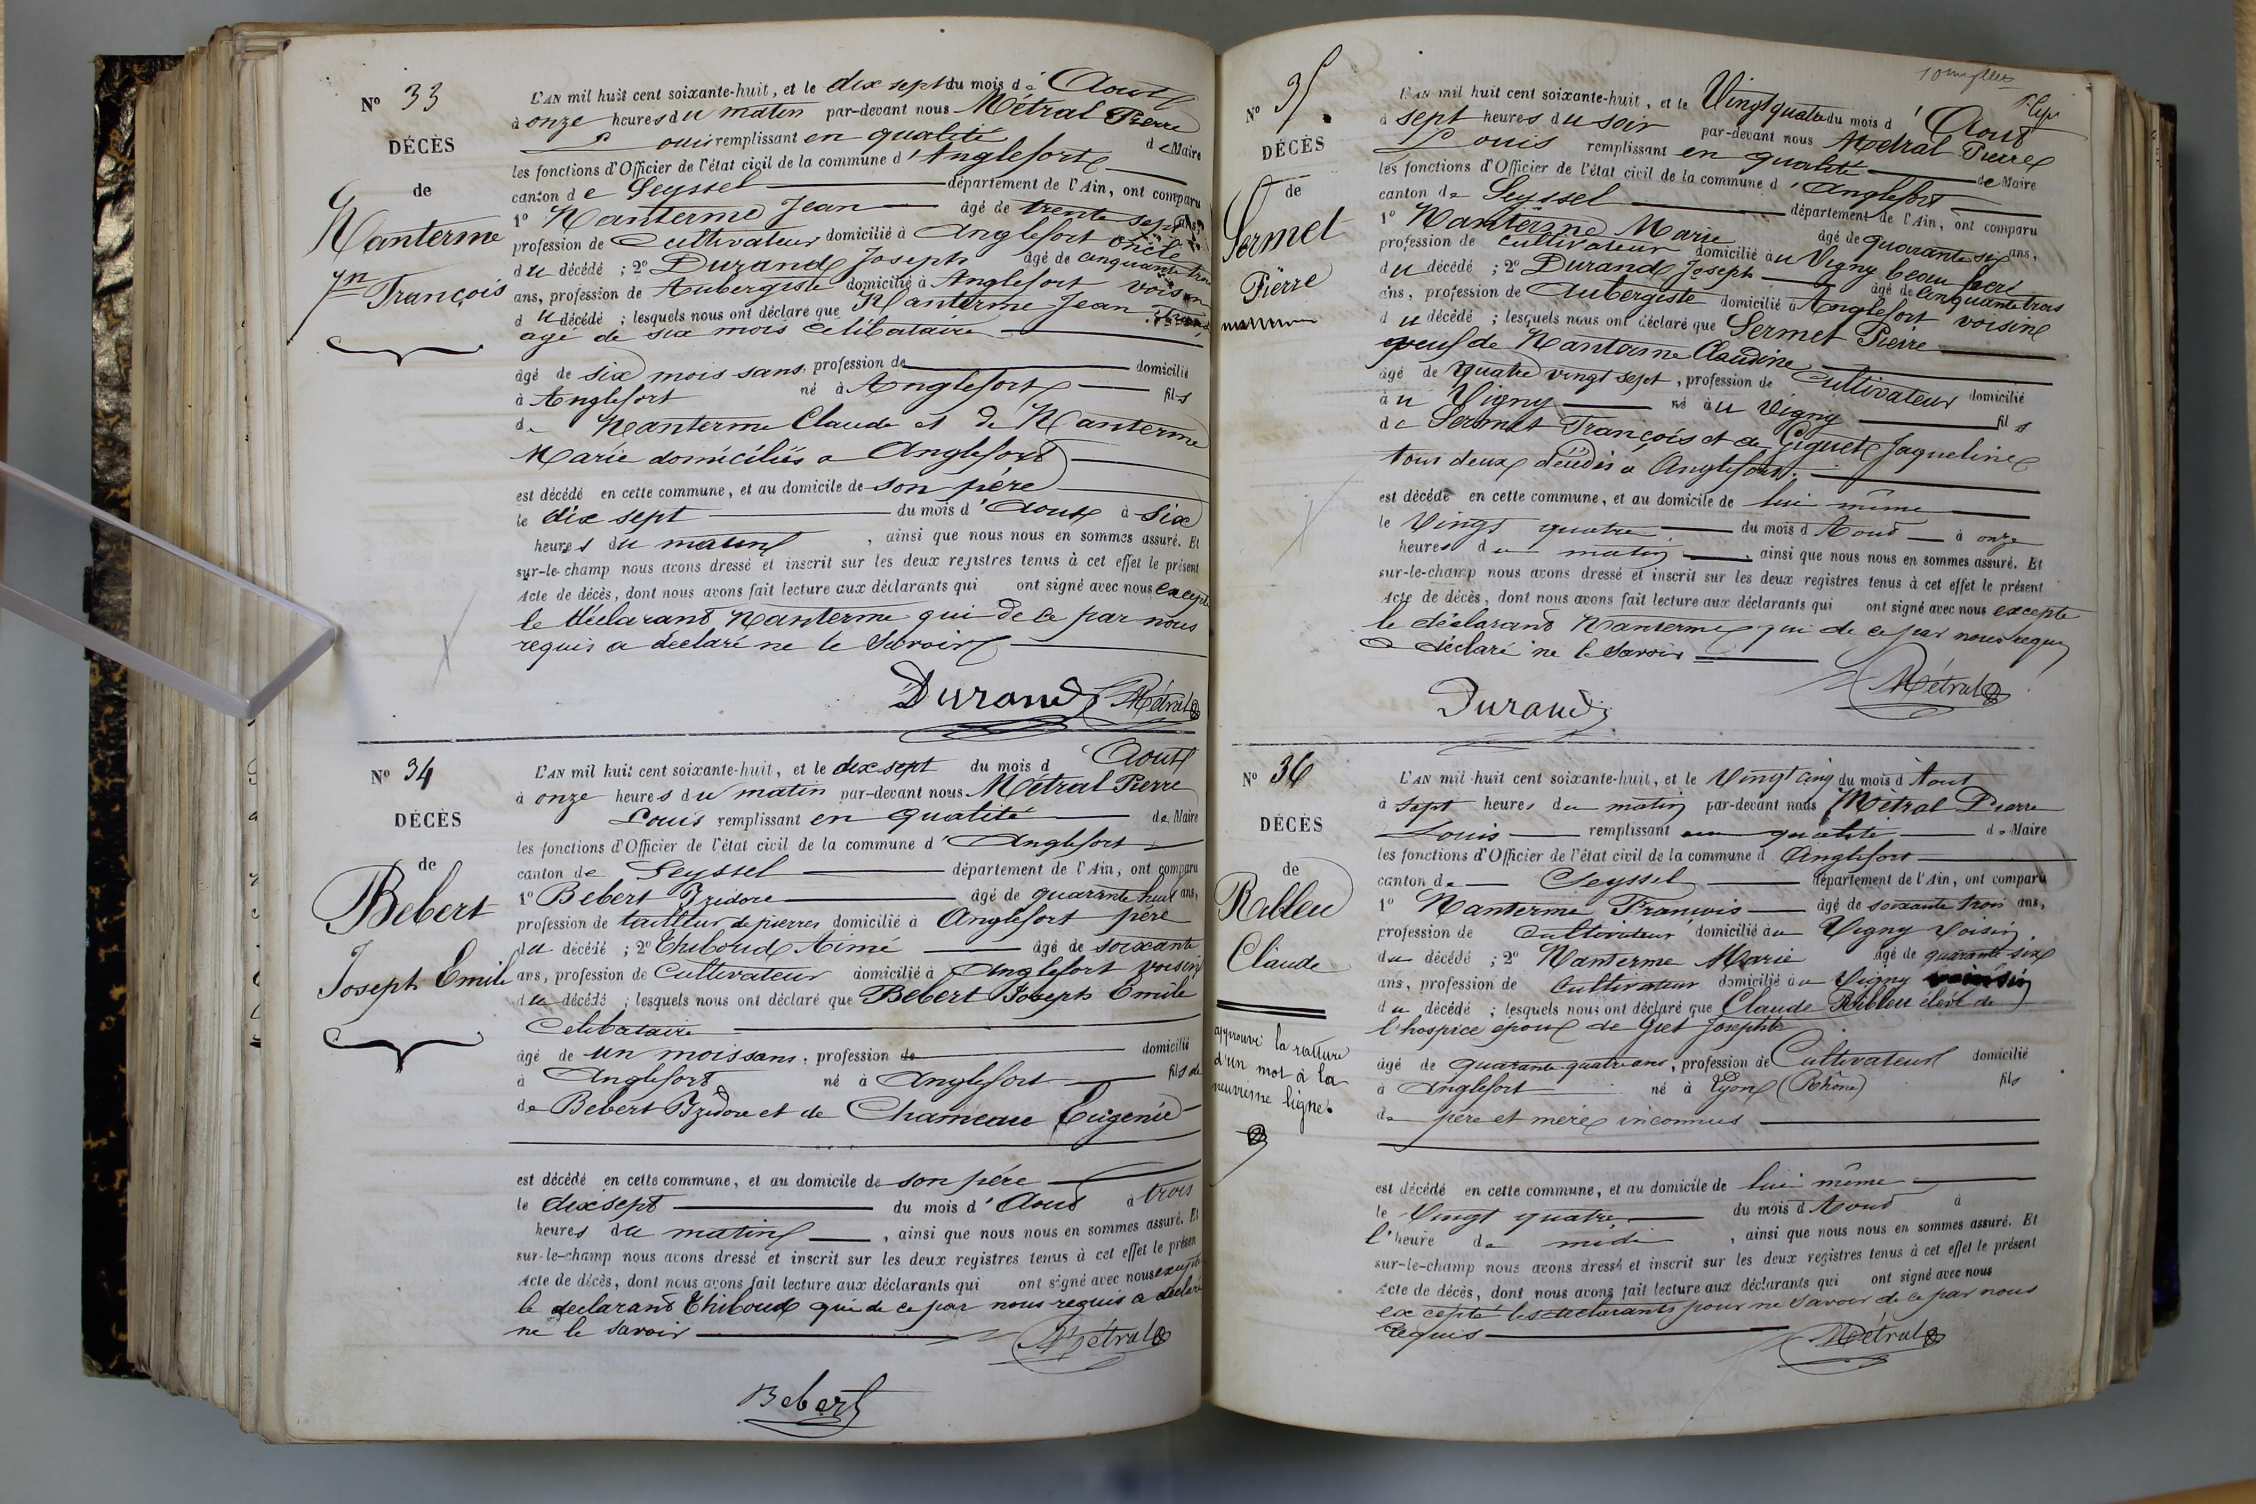 N° 33
DÉCÈS
de
Nanterme
Jn François
L'AN mil huit cent soixante-huit, et le dix sept du mois d' Aout
à onze heures du matin par-devant nous Métral Pierre
Louis remplissant en qualité de Maire
les fonctions d'Officier de l'état civil de la commune d'Anglefort
canton de Seyssel département de l'Ain, ont comparu
1° Nanterme Jean âgé de trente sept ans,
profession de Cultivateur domicilié à Anglefort oncle
du décédé ; 2° Durand Joseph âgé de cinquante trois
ans, profession de Aubergiste domicilié à Anglefort voisin
du décédé ; lesquels nous ont déclaré que Nanterme Jean
age de six mois celibataire
âgé de six mois sans profession de domicilié
à Anglefort né à Anglefort fils
de Nanterme Claude et de Nanterme
Marie domiciliés a Anglefort
est décédé en cette commune, et au domicile de son père
le dix sept du mois d'Aout à six
heures du matin , ainsi que nous nous en sommes assuré. Et
sur-le-champ nous avons dressé et inscrit sur les deux registres tenus à cet effet le présent
Acte de décès, dont nous avons fait lecture aux déclarants qui ont signé avec nous excepte
le déclarant Nanterme qui de ce par nous
requis a déclaré ne le Savoir
Durand Métral
N° 34
DÉCÈS
de
Bebert
Joseph Emile
L'AN mil huit cent soixante-huit, et le dix sept du mois d' Aout
à onze heures du matin par-devant nous Métral Pierre
Louis remplissant en qualité de Maire
les fonctions d'Officier de l'état civil de la commune d' Anglefort
canton de Seyssel département de l'Ain, ont comparu
1° Bebert Izidore âgé de quarante huit ans,
profession de tailleur de pierres domicilié à Anglefort père
du décédé ; 2° Thiboud Aimé âgé de soixante
ans, profession de Cultivateur domicilié à Anglefort voisin
du décédé ; lesquels nous ont déclaré que Bebert Joseph Emile
Celibataire
âgé de un mois sans profession de domicilié
à Anglefort né à Anglefort fils de
de Bebert Izidore et de Chameau Eugenie
est décédé en cette commune, et au domicile de son père
le dix sept du mois d'Aout à trois
heures du matin , ainsi que nous nous en sommes assuré. Et
sur-le-champ nous avons dressé et inscrit sur les deux registres tenus à cet effet le présen
Acte de décès, dont nous avons fait lecture aux déclarants qui ont signé avec nous excepté
le declarant Thiboud qui de ce par nous requis a déclaré
ne le savoir Métral
Bebert
N° 35
DÉCÈS
de
Sermet
Pierre
L'AN mil huit cent soixante-huit, et le Vingt quatre du mois d' Aout
à sept heures du soir par-devant nous Métral Pierre
Louis remplissant en qualité de Maire
les fonctions d'Officier de l'état civil de la commune d'Anglefort
canton de Seyssel département de l'Ain, ont comparu
1° Nanterme Marie âgé de quarante six ans,
profession de cultivateur domicilié au Vigny beau frere
du décédé ; 2° Durand Joseph âgé de Cinquante trois
ans, profession de Aubergiste domicilié à Anglefort voisin
du décédé ; lesquels nous ont déclaré que Sermet Pierre
veuf de Nanterme Claudine
âgé de quatre vingt sept, profession de Cultivateur domicilié
au Vigny né au Vigny fils
de Sermet François et de Giguet Jaqueline
tous deux décédés a Anglefort.
est décédé en cette commune, et au domicile de lui même
le Vingt quatre du mois d Aout à onze
heures du matin , ainsi que nous nous en sommes assuré. Et
sur-le-champ nous avons dressé et inscrit sur les deux registres tenus à cet effet le présent
Acte de décès, dont nous avons fait lecture aux déclarants qui ont signé avec nous excepte
le déclarant Nanterme qui de ce par nous requis
a déclaré ne le Savoir
Métral
Durand
N° 36
DÉCÈS
de
Ribleu
Claude
approuvé la rature
d'un mot à la
neuvième ligne.
L'AN mil huit cent soixante-huit, et le Vingt cinq du mois d'Aout
à sept heures du matin par-devant nous Métral Pierre
Louis remplissant en qualité de Maire
les fonctions d'Officier de l'état civil de la commune d Anglefort
canton de Seyssel département de l'Ain, ont comparu
1° Nanterme François âgé de soixante trois ans,
profession de Cultivateur domicilié au Vigny Voisin
du décédé ; 2° Nanterme Marie âgé de quarante six
ans, profession de Cultivateur domicilié au Vigny
du décédé ; lesquels nous ont déclaré que Claude Ribleu élevé de
l'hospice époux de Josephte
âgé de quarante quatre ans, profession de Cultivateur domicilié
à Anglefort né à Lyon (Rhône) fils
de père et mère inconnus
est décédé en cette commune, et au domicile de lui même
le Vingt quatre du mois d Aout à
l'heure de midi , ainsi que nous nous en sommes assuré. Et
sur-le-champ nous avons dressé et inscrit sur les deux registres tenus à cet effet le présent
Acte de décès, dont nous avons fait lecture aux déclarants qui ont signé avec nous
excepté les declarants pour ne savoir de ce par nous
requis Métral